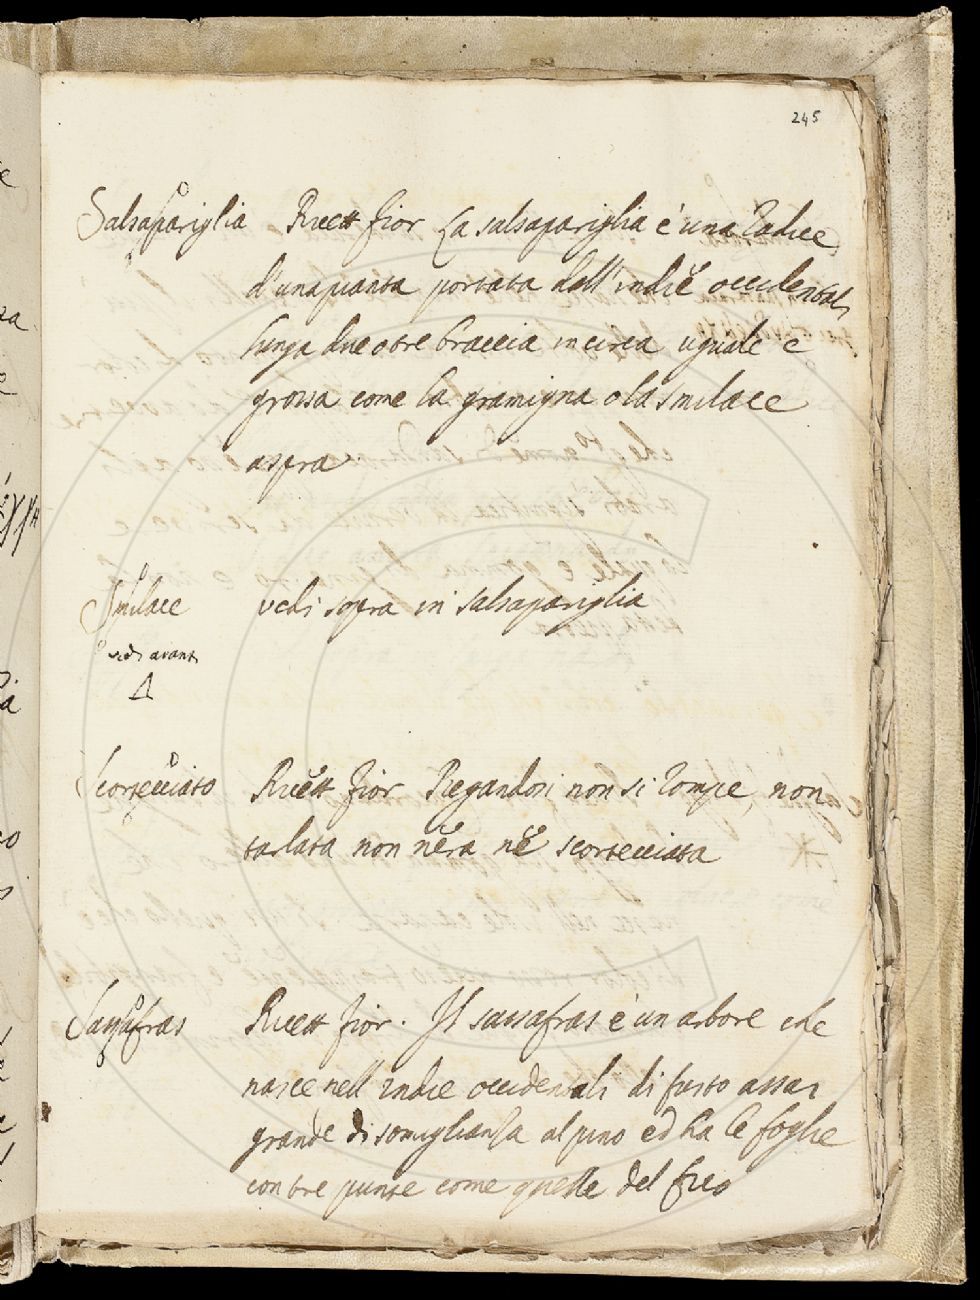 245
Salsapariglia Ricett fior La salsapariglia è una radice
d'una pianta portata dall'indie occidentali
lunga due o tre braccia in circa uguale e
grossa come la gramigna o la smilace
aspra
Smilace vedi sopra in salsapariglia
vedi avanti
Scortecciato Ricett fior Piegandosi non si rompe, non
tarlata non nera nè scortecciata
Sassafras Ricett fior. Il sassafras è un arbore che
nasce nell'indie occidentali di fusto assai
grande di somiglianza al pino ed ha le foglie
con tre punte come quelle del fico